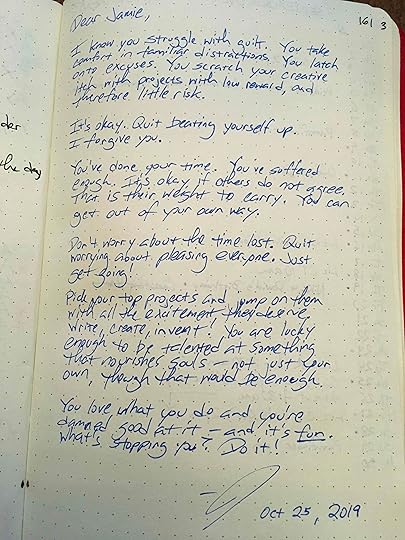 161 3
Dear Jamie,
I know you struggle with guilt. You take
comfort in familiar distractions. You latch
onto excuses. You scratch your creative
itch with projects with low reward, and
therefore little risk.
It's okay. Quit beating yourself up.
I forgive you.
You've done your time. You've suffered
enough. It's okay if others do not agree.
That is their weight to carry. You can
get out of your own way.
Don't worry about the time lost. Quit
worrying about pleasing everyone. Just
get going!
Pick your top projects and jump on them
with all the excitement they deserve.
Write, create, invent! You are lucky
enough to be talented at something
that nourishes souls – not just your
own, though that would be enough.
You love what you do and you're
damned good at it – and it's fun.
What's stopping you? Do it!
Oct 25, 2019
der
the day